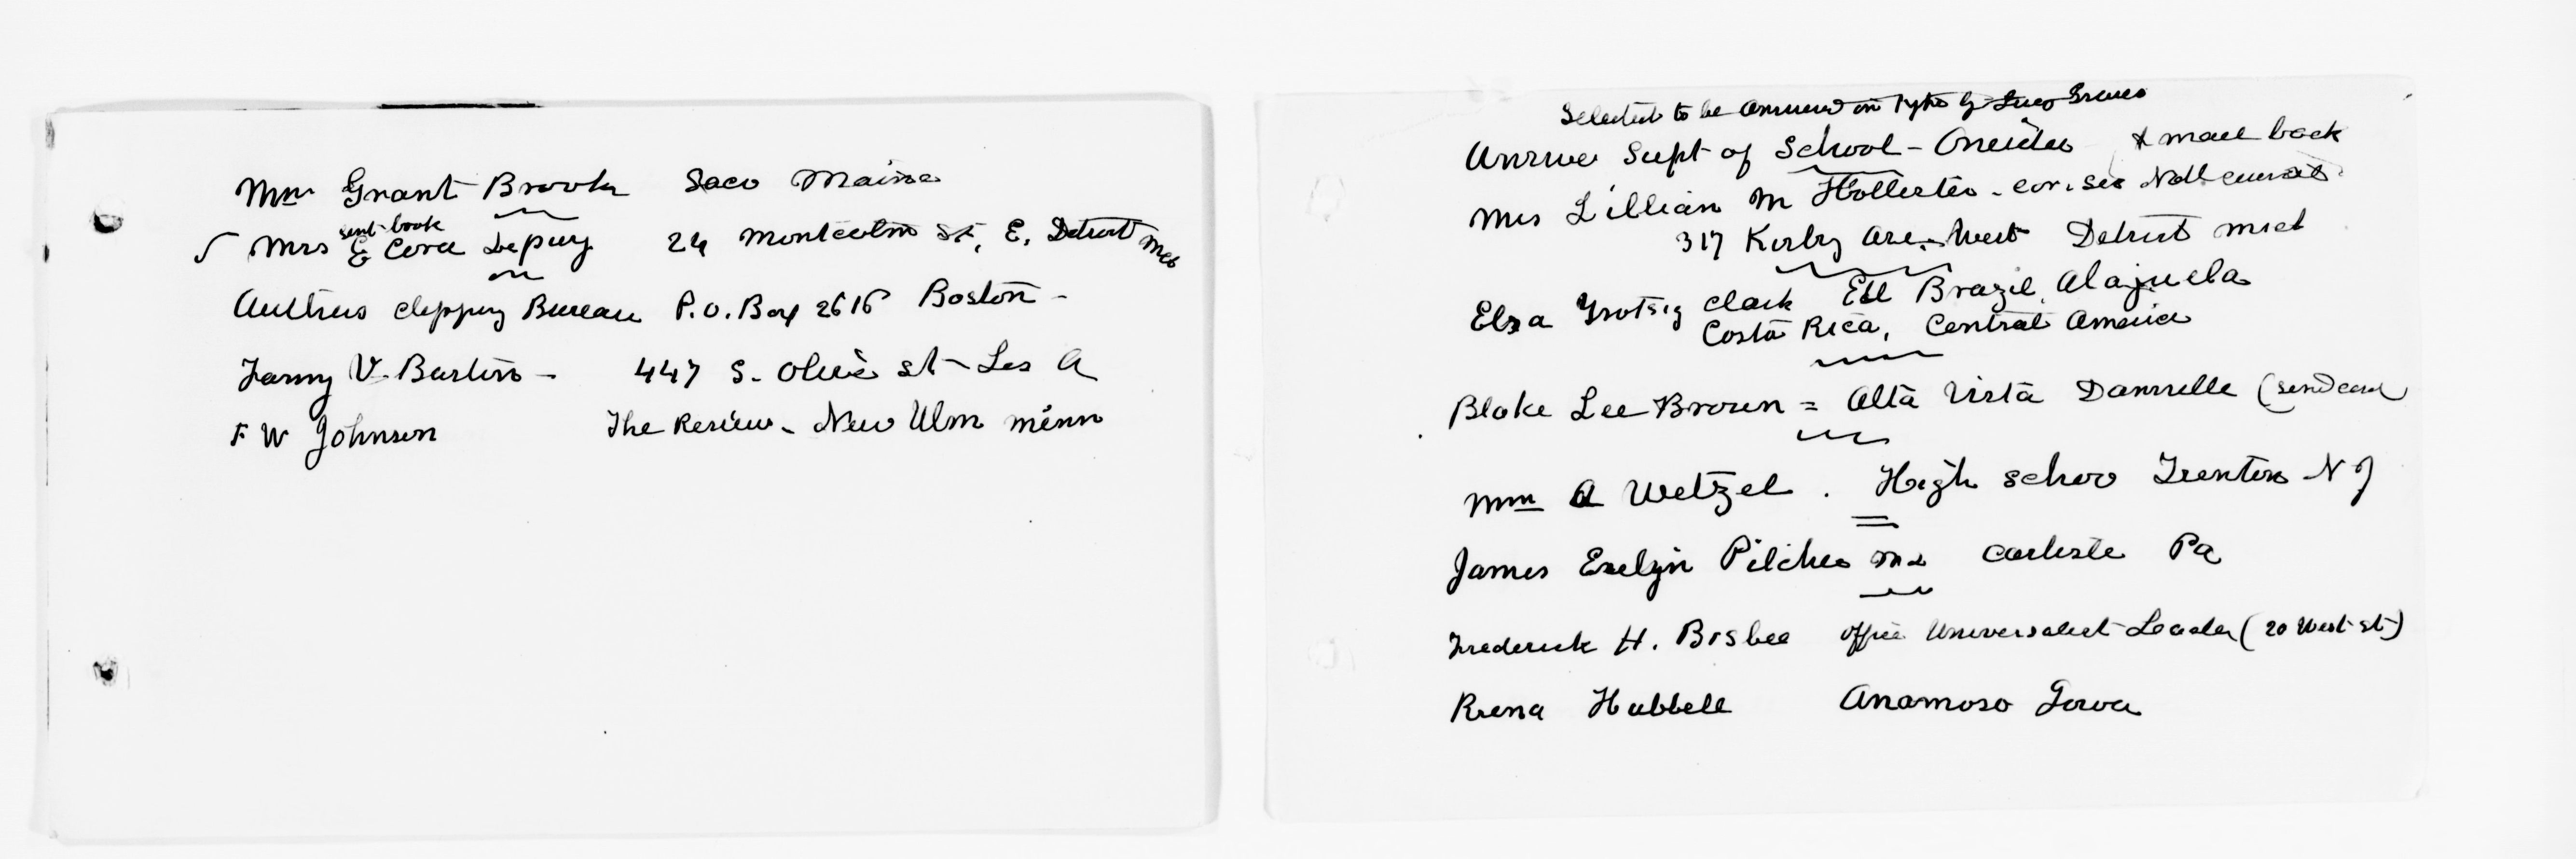 Mrs Grant Brooks Saco Maine
sent book
√ Mrs E Cora Depuy 24 Montcalm St, E. Detroit Mch
Authors clipping Bureau P.O. Box 2616 Boston -
Fanny V. Bartin - 447 S. Olive st - Los A
F W Johnson The Review - New Ulm minn
Selected to be on type by Grace
Answer Supt of School - Oneida & mail back
Mrs Lillian M Hollister - cor. sec
317 Kirby Ave. West Detroit mich
Elsa Clark Brazil, Alajuela
Costa Rica, Central America
Blake Lee Brown = Alta Vista Danville (send card
A Wetzel. High schoo Trenton N J
James Evelyn Pilcher Carlisle Pa
Frederick H. Bisbee office Universalist Leader (20 West st)
Rena Hubbell Anamoso Iowa